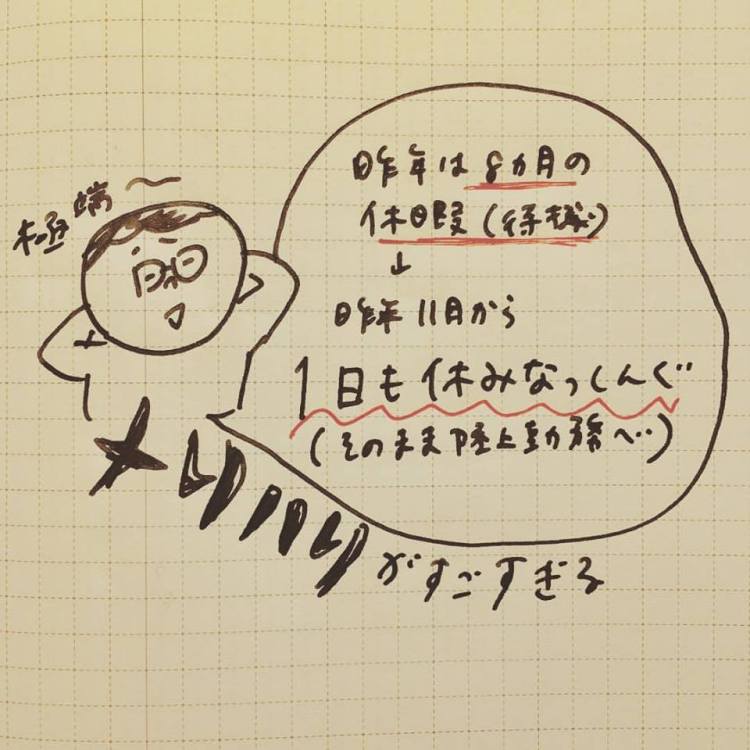 極端〜
昨年は8ヵ月の
休暇(待機)
↓
昨年11月から
1日も休みなっしんぐ
(そのまま陸上勤務へ…)
メリハリがすごすぎる